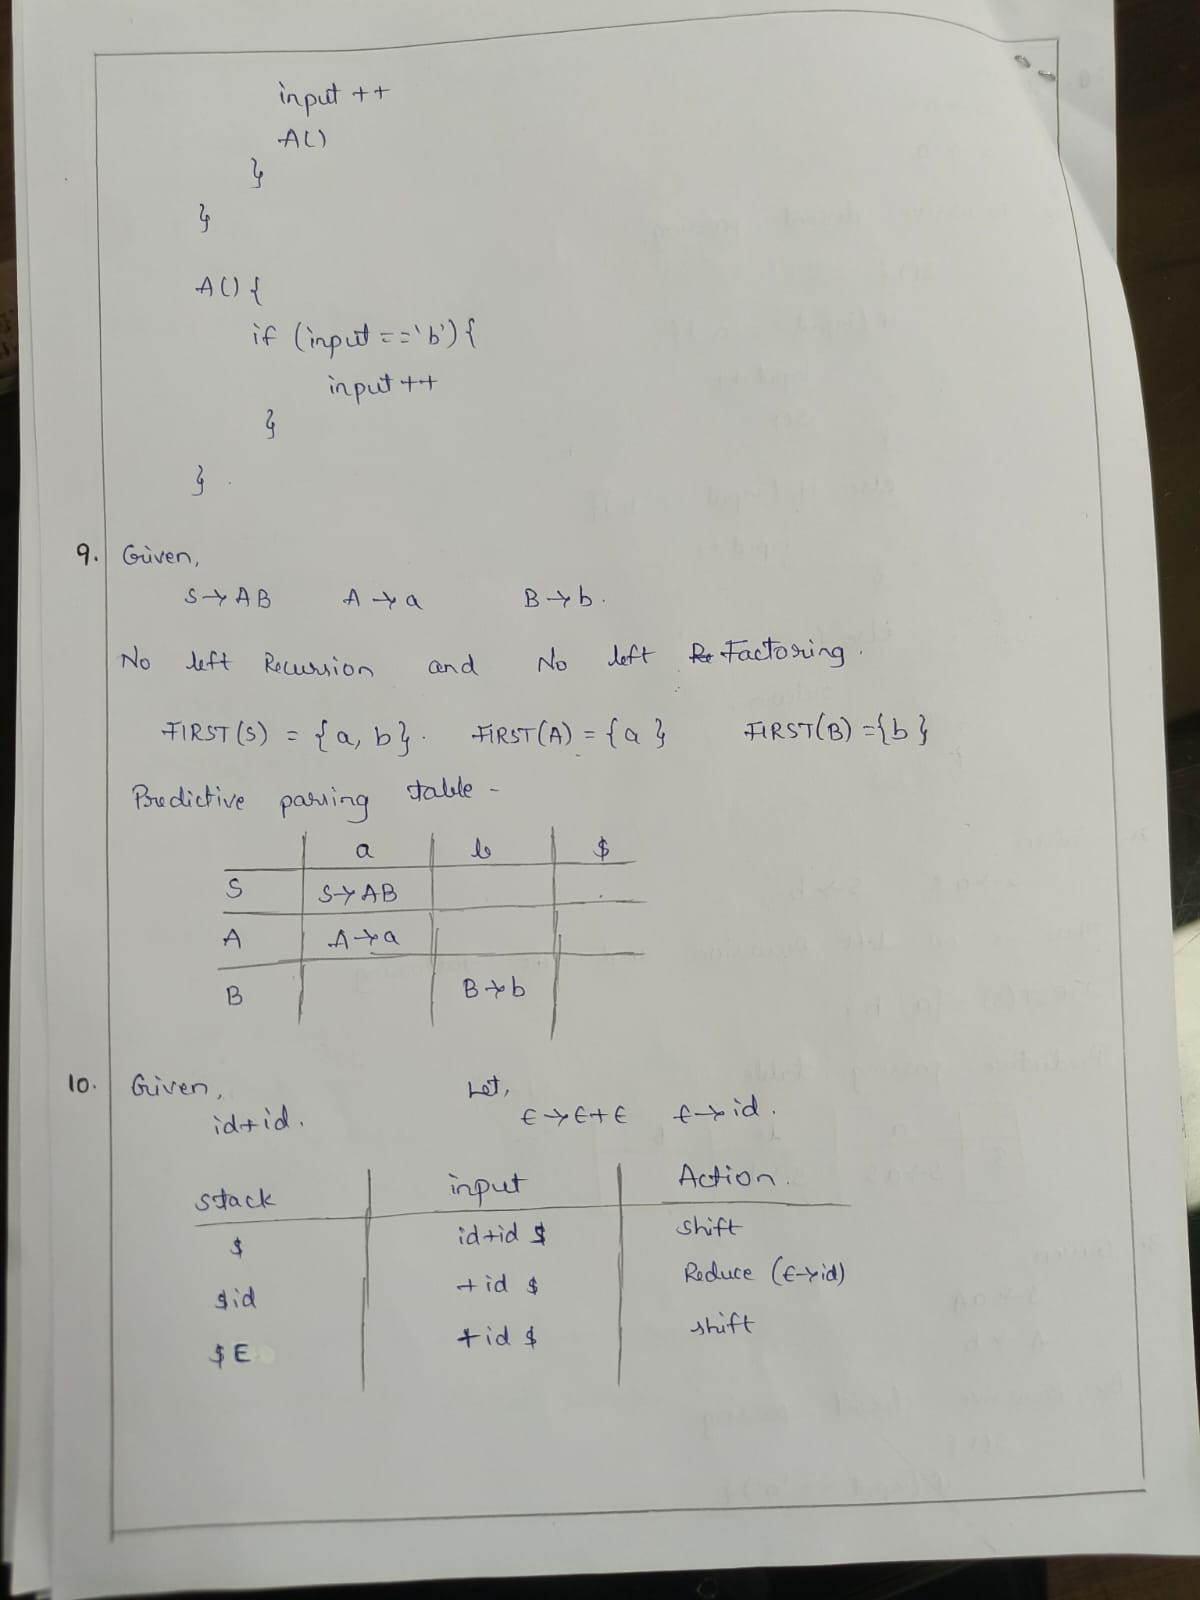 input ++
A()
}
}
A() {
if (input == 'b') {
input ++
}
}
9. Given,
S → AB A → a B → b.
No left Recursion and No left Factoring.
FIRST(S) = {a, b}. FIRST(A) = {a} FIRST(B) = {b}
Predictive parsing table -
a b $
S S → AB
A A → a
B B → b
10. Given, Let,
id+id. E → E+E E → id.
Stack input Action.
$ id+id $ Shift
$id +id $ Reduce (E→id)
$E +id $ shift